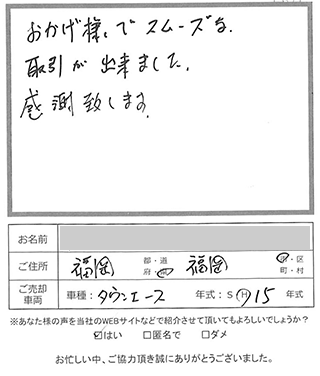 おかげ様でスムーズな
取引が出来ました。
感謝致します。
お名前
ご住所 福岡 都・道 府・県 福岡 市・区 町・村
ご売却 車両 車種：タウンエース 年式：S・H 15 年式
※あなた様の声を当社のWEBサイトなどで紹介させて頂いてもよろしいでしょうか？
☑はい □匿名で □ダメ
お忙しい中、ご協力頂き誠にありがとうございました。